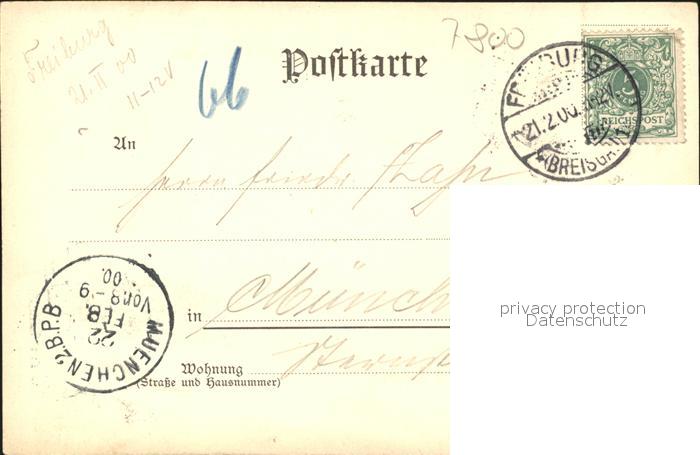 7800
Freiburg
21. II 00
11-12V
66
Postkarte
FREIBURG
21.2.00.11-12V.
(BREISGAU)
REICHSPOST
An
Herrn Friedr. Zahn
MUENCHEN 2.B.P.B
22
FEB.
Vor. 8-9
00.
in Münch
Wohnung
(Straße und Hausnummer)
privacy protection
Datenschutz